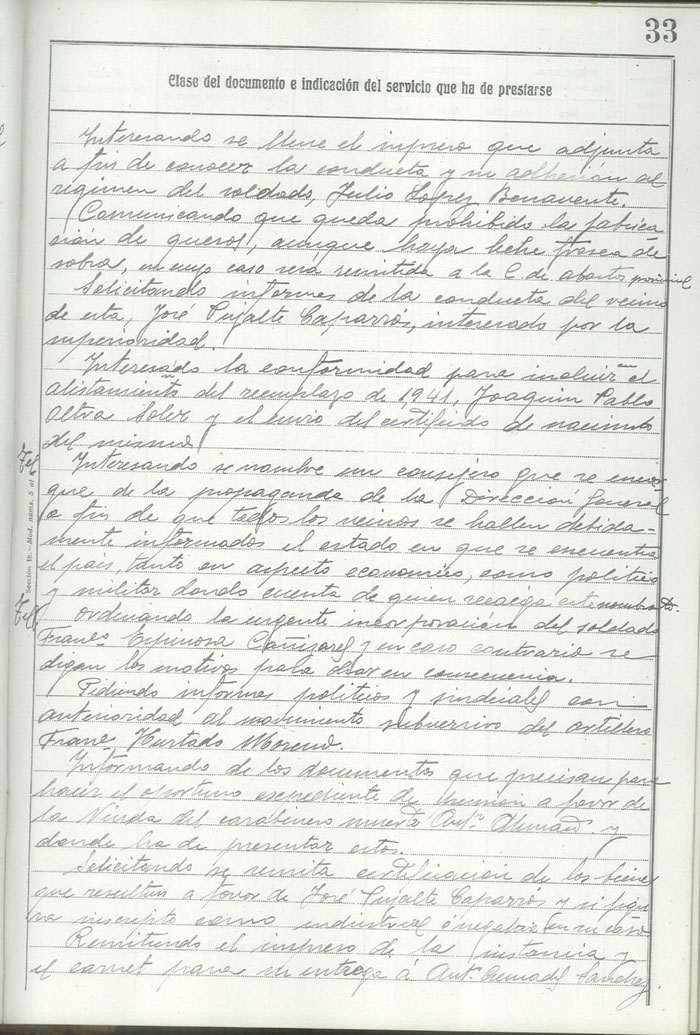 33
Clase del documento e indicación del servicio que ha de prestarse
Interesando se llene el impreso que adjunta
a fin de conocer la conducta y su adhesión al
régimen del soldado, Julio Lopez Benavente.
Comunicando que queda prohibido la fabrica
ción de quesos, aunque haya leche fresca de
sobra, en cuyo caso será remitida a la C. de abastos provincial
Solicitando informes de la conducta del vecino
de esta, José Pujalte Caparrós, interesado por la
superioridad.
Interesado la conformidad para incluir en el
alistamiento del reemplazo de 1941, Joaquin Pablo
Soler y el envio del certificado de nacimiento
del mismo
Interesando se nombre un consejero que se encar
gue de la propaganda de la Dirección General
a fin de que todos los vecinos se hallen debida-
mente informados el estado en que se encuentra
el pais, tanto en aspecto economico, como politico
y militar dando cuenta de quien recaiga este nombrto
Ordenando la urgente incorporación del soldado
Franco Espinosa Cañizares y en caso contrario se
digan los motivos para obrar en consecuencia.
Pidiendo informes politicos y sindicales con
anterioridad al movimiento subversivo del artillero
Franco Hurtado Moreno.
Informando de los documentos que precisan para
hacer el oportuno expediente de pension a favor de
la Viuda del carabinero muerto Anto y
donde ha de presentar estos.
Solicitando se remita certificación de los bienes
que resultan a favor de José Pujalte Caparrós y si figu
ra inscripto como industrial ó negativa en su caso
Remitiendo el impreso de la instancia y
el carnet para su entrega á Anto Sanchez.
Sección 1ª.—Mod. nums. 5 al 6